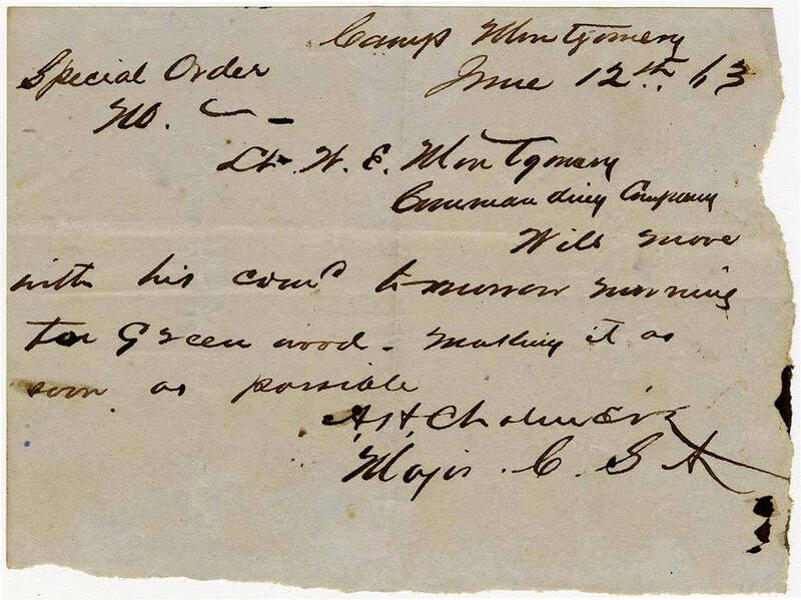 Camp Montgomery
June 12th. 63
Special Order
No. —
Lt. W. E. Montgomery
Commanding Company
Will move
with his com'd tomorrow morning
for Greenwood - making it as
soon as possible
A. H. Chalmers
Major. C. S A